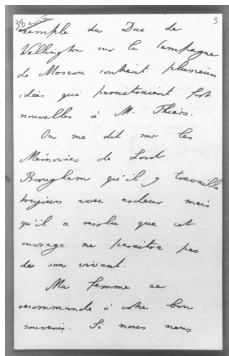 3
exemple du Duc de
Wellington sur la Campagne
de Moscou contient plusieurs
idées qui paraitraient fort
nouvelles à M. Thiers.
On me dit sur les
Mémoires de Lord
Brougham qu'il y travaille
toujours avec ardeur mais
qu'il a voulu que cet
ouvrage ne paraitra pas
de son vivant.
Ma femme se
recommande à votre bon
souvenir. Si nous nous